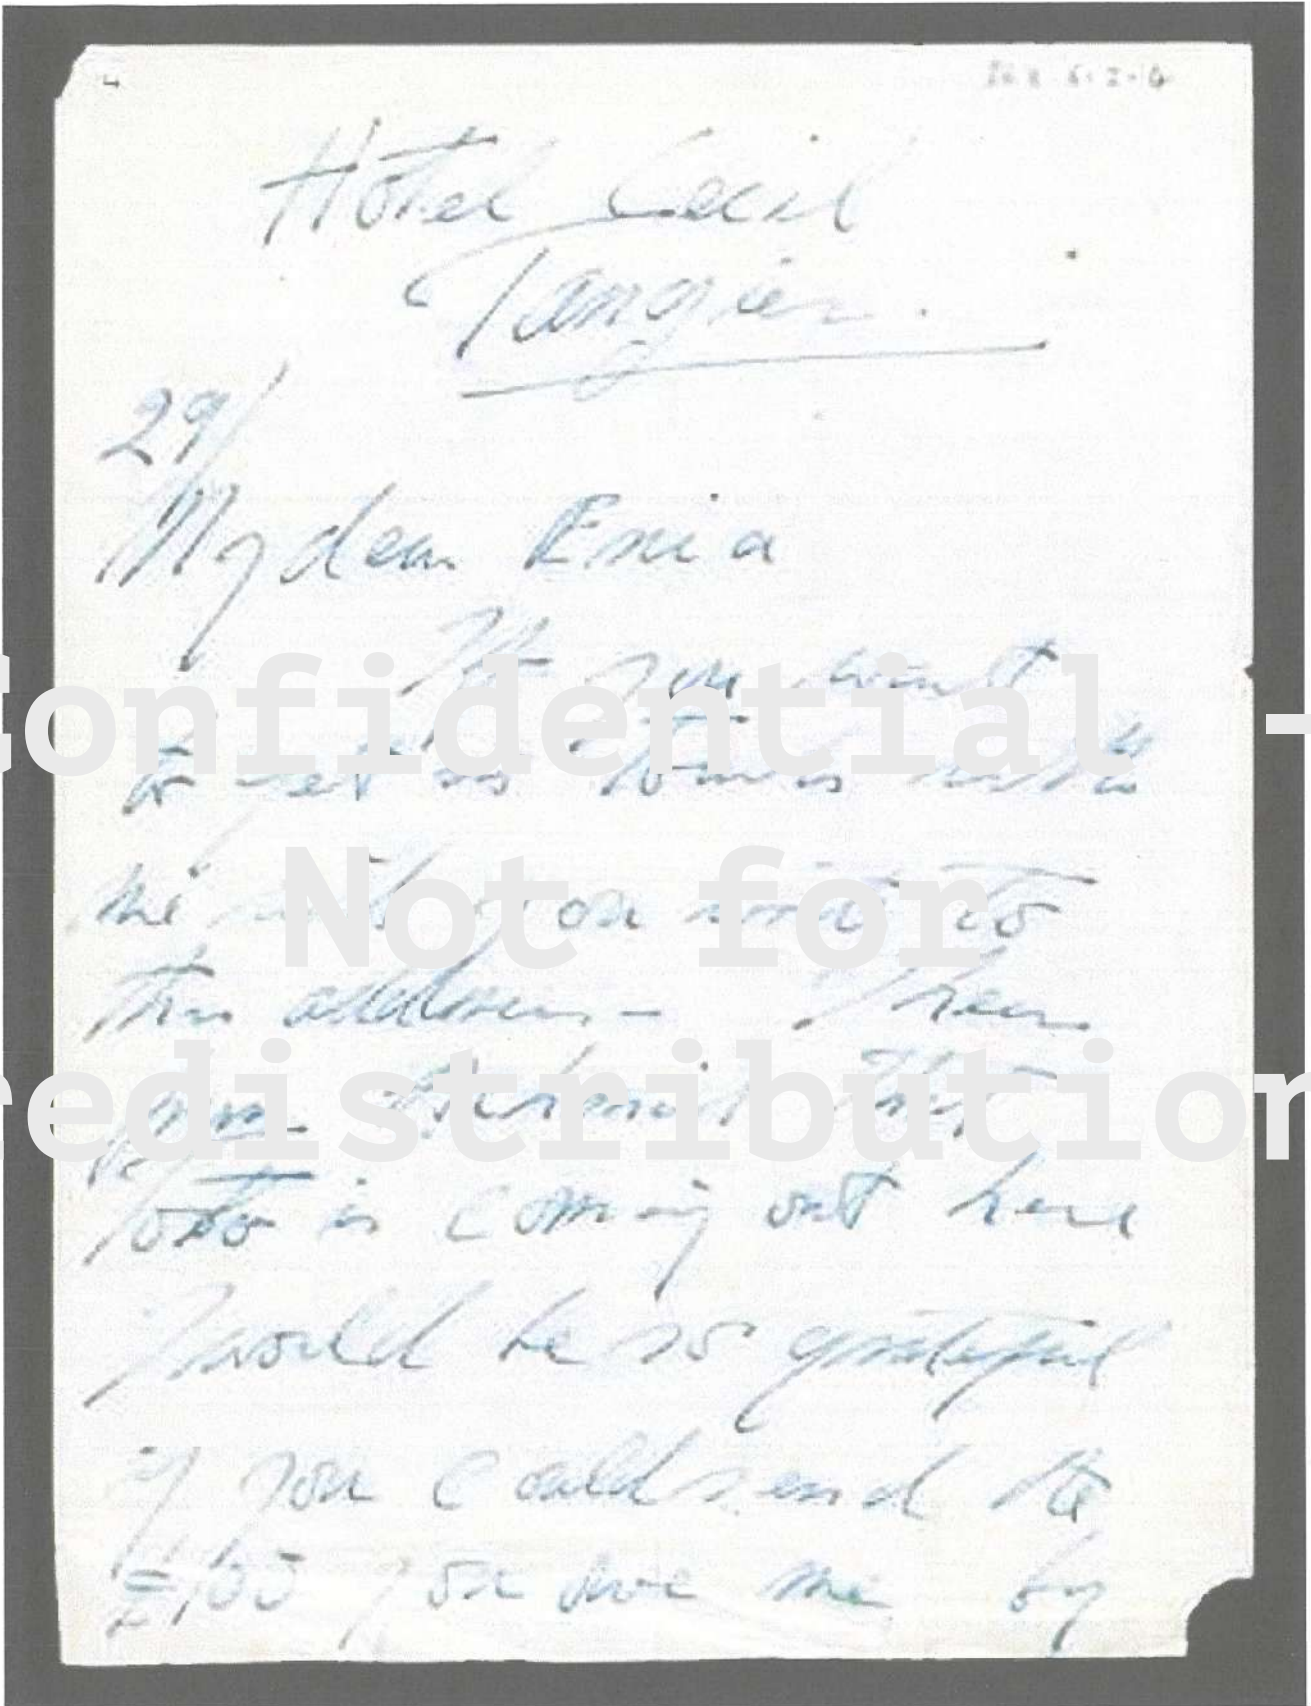 Hotel Cecil
Tangier.
29/
My dear Erica
If you want
to get in touch with
me will you write to
this address – I hear
from that
Toto is coming out here
I would be so grateful
if you could send the
£100 you owe me by
Confidential -
Not for
redistribution